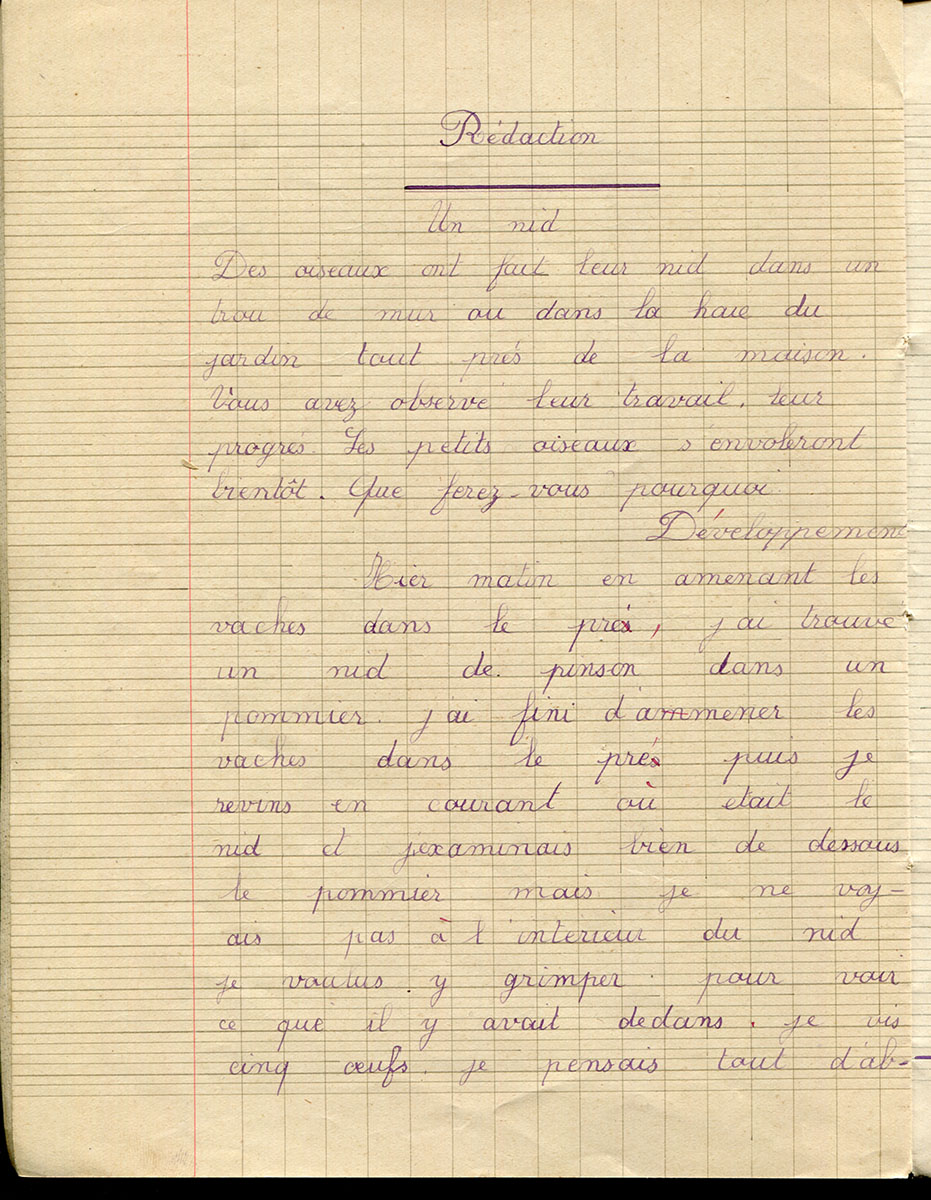 Rédaction
Un nid
Des oiseaux ont fait leur nid dans un
trou de mur ou dans la haie du
jardin tout prés de la maison.
Vous avez observé leur travail, leur
progres. Les petits oiseaux s'envoleront
bientôt. Que ferez-vous pourquoi
Développement
Hier matin en amenant les
vaches dans le prés, j'ai trouvé
un nid de pinson dans un
pommier. j'ai fini d'ammener les
vaches dans le prés puis je
revins en courant où était le
nid et j'examinais bien de dessous
le pommier mais je ne voy-
ais pas à l'interieur du nid
je voulus y grimper pour voir
ce que il y avait dedans. je vis
cinq œufs. je pensais tout d'ab-